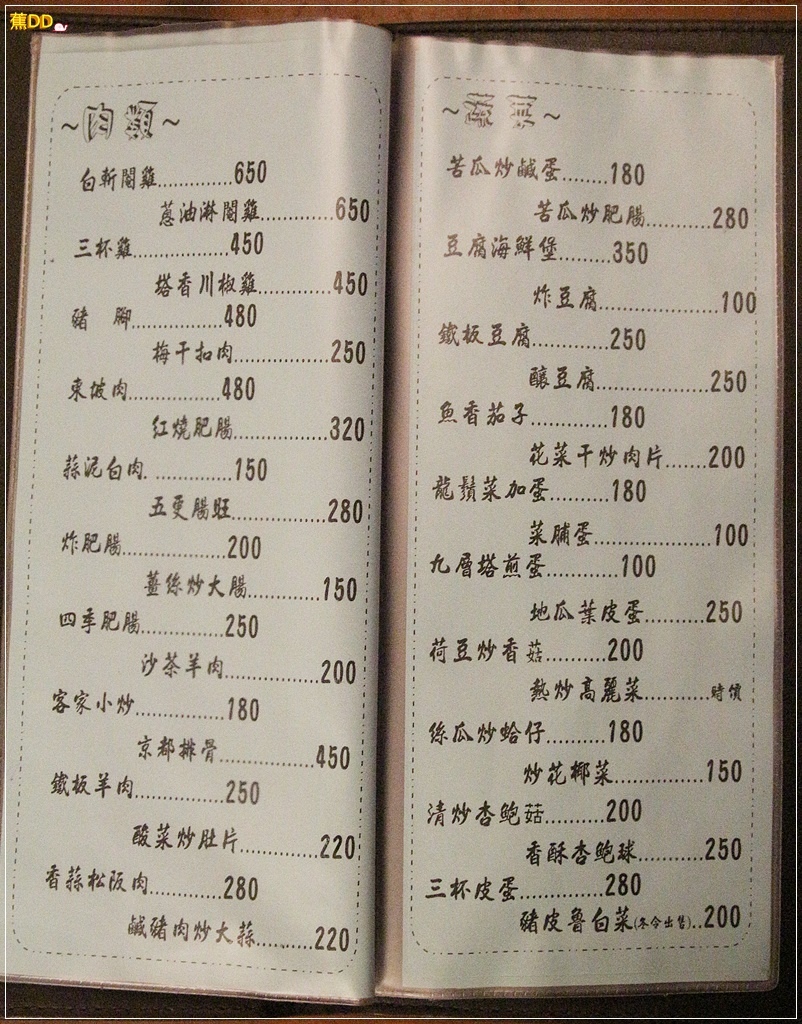 蕉DD
~肉類~
白斬閹雞.............650
蔥油淋閹雞.............650
三杯雞..............450
塔香川椒雞.............450
豬 腳................480
梅干扣肉.................250
東坡肉................480
紅燒肥腸.................320
蒜泥白肉. .............150
五更腸旺.................280
炸肥腸..................200
薑絲炒大腸.............150
四季肥腸..............250
沙茶羊肉.................200
客家小炒................180
京都排骨.................450
鐵板羊肉................250
酸菜炒肚片..............220
香蒜松阪肉.............280
鹹豬肉炒大蒜..........220
~蔬菜~
苦瓜炒鹹蛋........180
苦瓜炒肥腸............280
豆腐海鮮堡.........350
炸豆腐.....................100
鐵板豆腐.............250
釀豆腐....................250
魚香茄子.............180
花菜干炒肉片.......200
龍鬚菜加蛋..........180
菜脯蛋....................100
九層塔煎蛋............100
地瓜葉皮蛋..........250
荷豆炒香菇..........200
熱炒高麗菜...........時價
絲瓜炒蛤仔..........180
炒花椰菜...............150
清炒杏鮑菇..........200
香酥杏鮑球...........250
三杯皮蛋..............280
豬皮魯白菜(冬令出售)..200